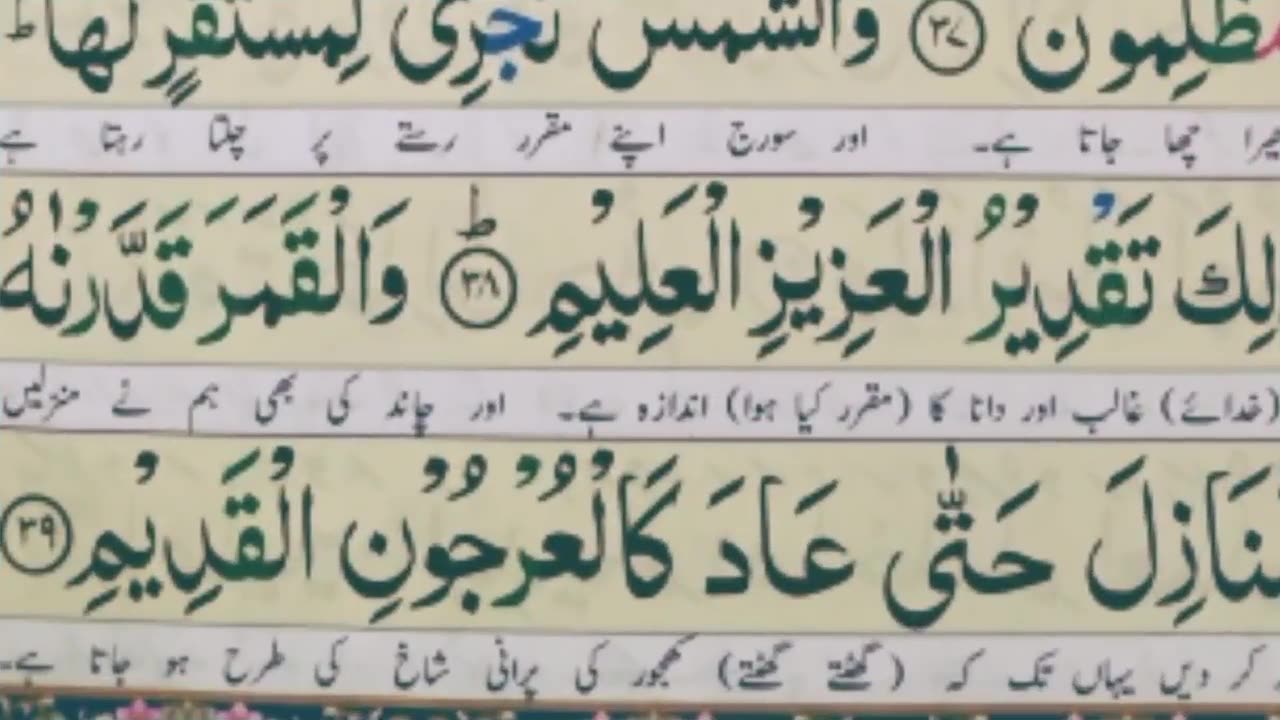 مُّظْلِمُونَ ﴿۳۷﴾ وَالشَّمْسُ تَجْرِیْ لِمُسْتَقَرٍّ لَّهَا ط
چھا جاتا ہے۔ اور سورج اپنے مقرر رستے پر چلتا رہتا ہے
لِكَ تَقْدِیْرُ الْعَزِیْزِ الْعَلِیْمِ ﴿۳۸﴾ ط وَالْقَمَرَ قَدَّرْنٰهُ
(خدائے) غالب اور دانا کا (مقرر کیا ہوا) اندازہ ہے۔ اور چاند کی بھی ہم نے منزلیں
مَنَازِلَ حَتّٰی عَادَ كَالْعُرْجُوْنِ الْقَدِیْمِ ﴿۳۹﴾
کر دیں یہاں تک کہ (گھٹتے گھٹتے) کھجور کی پرانی شاخ کی طرح ہو جاتا ہے۔